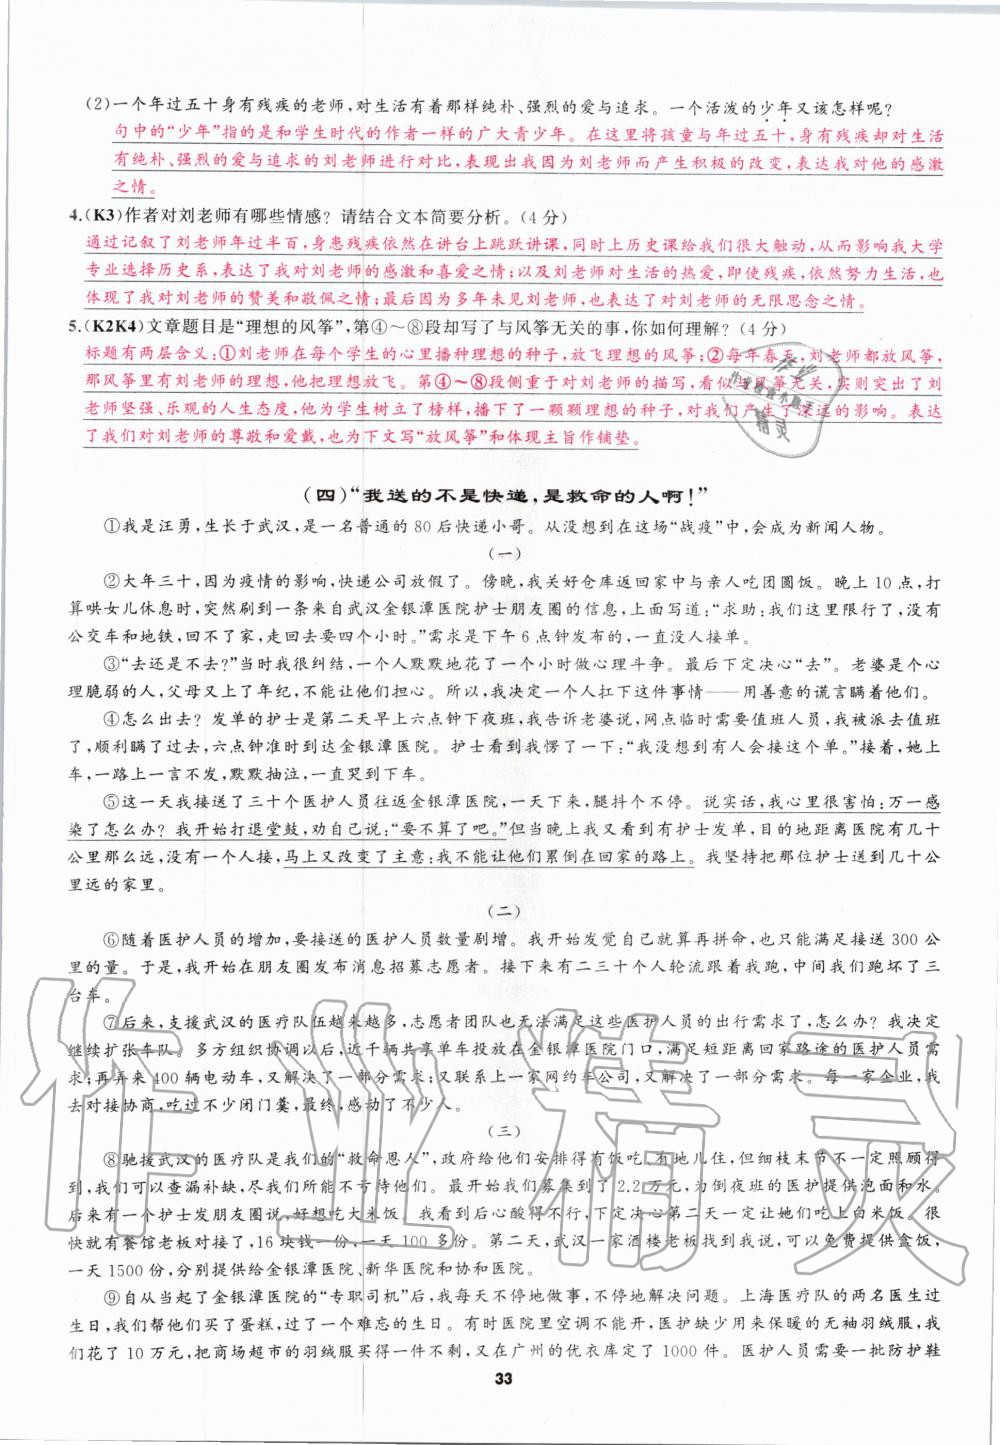 (2)一个年过五十身有残疾的老师,对生活有着那样纯朴、强烈的爱与追求。一个活泼的少年又该怎样呢?
句中的“少年”指的是和学生时代的作者一样的广大青少年。在这里将孩童与年过五十,身有残疾却对生活
有纯朴、强烈的爱与追求的刘老师进行对比,表现出我因为刘老师而产生积极的改变,表达我对他的感激
之情。
4.(K3)作者对刘老师有哪些情感?请结合文本简要分析。(4分)
通过记叙了刘老师年过半百,身患残疾依然在讲台上跳跃讲课,同时上历史课给我们很大触动,从而影响我大学
专业选择历史系,表达了我对刘老师的感激和喜爱之情;以及刘老师对生活的热爱,即使残疾,依然努力生活,也
体现了我对刘老师的赞美和敬佩之情;最后因为多年未见刘老师,也表达了对刘老师的无限思念之情。
5.(K2K4)文章题目是“理想的风筝”,第④~⑧段却写了与风筝无关的事,你如何理解?(4分)
标题有两层含义:①刘老师在每个学生的心里播种理想的种子,放飞理想的风筝;②每年春天,刘老师都放风筝,
那风筝里有刘老师的理想,他把理想放飞。第④~⑧段侧重于对刘老师的描写,看似与风筝无关,实则突出了刘
老师坚强、乐观的人生态度,他为学生树立了榜样,播下了一颗颗理想的种子,对我们产生了深远的影响。表达
了我们对刘老师的尊敬和爱戴,也为下文写“放风筝”和体现主旨作铺垫。
(四)“我送的不是快递,是救命的人啊!”
①我是汪勇,生长于武汉,是一名普通的80后快递小哥。从没想到在这场“战疫”中,会成为新闻人物。
(一)
②大年三十,因为疫情的影响,快递公司放假了。傍晚,我关好仓库返回家中与亲人吃团圆饭。晚上10点,打
算哄女儿休息时,突然刷到一条来自武汉金银潭医院护士朋友圈的信息,上面写道:“求助:我们这里限行了,没有
公交车和地铁,回不了家,走回去要四个小时。”需求是下午6点钟发布的,一直没人接单。
③“去还是不去?”当时我很纠结,一个人默默地花了一个小时做心理斗争。最后下定决心“去”。老婆是个心
理脆弱的人,父母又上了年纪,不能让他们担心。所以,我决定一个人扛下这件事情——用善意的谎言瞒着他们。
④怎么出去?发单的护士是第二天早上六点钟下夜班,我告诉老婆说,网点临时需要值班人员,我被派去值班
了,顺利瞒了过去,六点钟准时到达金银潭医院。护士看到我愣了一下:“我没想到有人会接这个单。”接着,她上
车,一路上一言不发,默默抽泣,一直哭到下车。
⑤这一天我接送了三十个医护人员往返金银潭医院,一天下来,腿抖个不停。说实话,我心里很害怕:万一感
染了怎么办?我开始打退堂鼓,劝自己说:“要不算了吧。”但当晚上我又看到有护士发单,目的地距离医院有几十
公里那么远,没有一个人接,马上又改变了主意:我不能让他们累倒在回家的路上。我坚持把那位护士送到几十公
里远的家里。
(二)
⑥随着医护人员的增加,要接送的医护人员数量剧增。我开始发觉自己就算再拼命,也只能满足接送300公
里的量。于是,我开始在朋友圈发布消息招募志愿者。接下来有二三十个人轮流跟着我跑,中间我们跑坏了三
台车。
⑦后来,支援武汉的医疗队伍越来越多,志愿者团队也无法满足这些医护人员的出行需求了,怎么办?我决定
继续扩张车队。多方组织协调以后,近千辆共享单车投放在金银潭医院门口,满足短距离回家路途的医护人员需
求;再弄来400辆电动车,又解决了一部分需求;又联系上一家网约车公司,又解决了一部分需求。每一家企业,我
去对接协商,吃过不少闭门羹,最终,感动了不少人。
(三)
⑧驰援武汉的医疗队是我们的“救命恩人”,政府给他们安排得有饭吃、有地儿住,但细枝末节不一定照顾得
到,我们可以查漏补缺,尽我们所能不亏待他们。最开始我们募集到了2.2万元,为倒夜班的医护提供泡面和水。
后来有一个护士发朋友圈说,好想吃大米饭。我看到后心酸得不行,下定决心第二天一定让她们吃上白米饭。很
快就有餐馆老板对接了,16块钱一份,一天100多份。第二天,武汉一家酒楼老板找到我说,可以免费提供盒饭,
一天1500份,分别提供给金银潭医院、新华医院和协和医院。
⑨自从当起了金银潭医院的“专职司机”后,我每天不停地做事,不停地解决问题。上海医疗队的两名医生过
生日,我们帮他们买了蛋糕,过了一个难忘的生日。有时医院里空调不能开,医护缺少用来保暖的无袖羽绒服,我
们花了10万元,把商场超市的羽绒服买得一件不剩,又在广州的优衣库定了1000件。医护人员需要一批防护鞋
33
作业精灵
作业
作业检查小助手
精灵